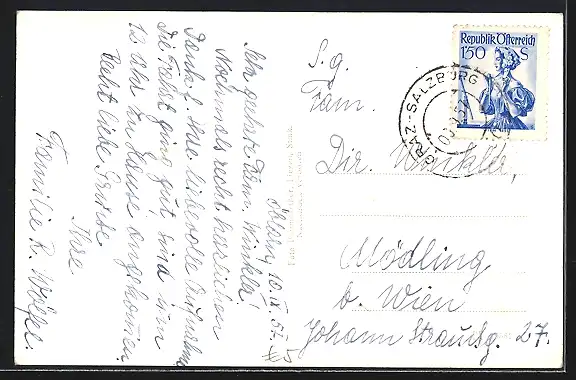 Öblarn, 10. IX. 52.
Sehr geehrte Fam. Winkler!
Nochmals recht herzlichen
Dank f. Ihre liebevolle Aufnahme
die Fahrt ging gut, sind um
12 Uhr zu Hause angekommen.
Recht liebe Grüsse
Ihre
Familie R. Wölfel.
S. g.
Fam.
Dir. Winkler,
Mödling
b. Wien
Johann Straußg. 27.
Republik Österreich
1'50 S
GRAZ-SALZBURG